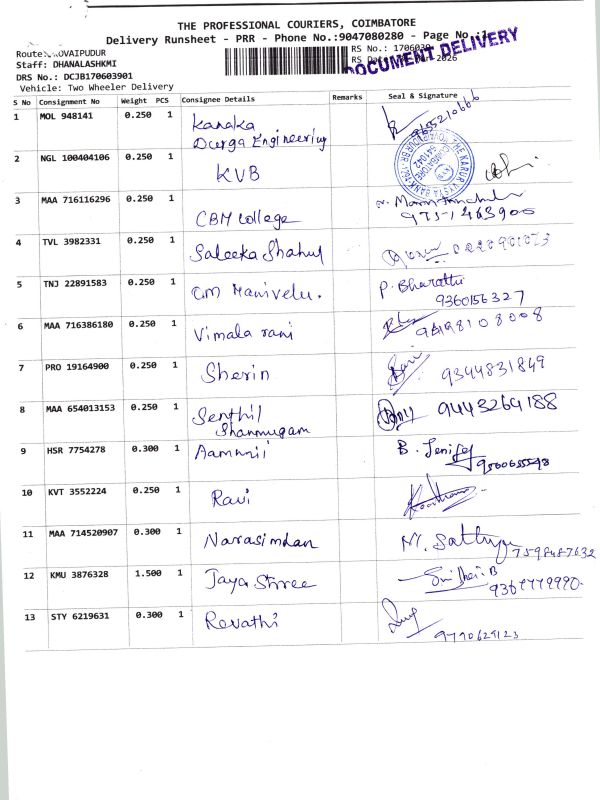 THE PROFESSIONAL COURIERS, COIMBATORE
Delivery Runsheet - PRR - Phone No.:9047080280 - Page No.:1
DOCUMENT DELIVERY
Route: KOVAIPUDUR
RS No.: 1706039
Staff: DHANALASHKMI
RS Date: 2026
DRS No.: DCJB170603901
Vehicle: Two Wheeler Delivery
S No Consignment No Weight PCS Consignee Details Remarks Seal & Signature
1 MOL 948141 0.250 1 Kanaka Durga Engineering 965210666
2 NGL 100404106 0.250 1 KVB
THE KARUR VYSYA BANK COIMBATORE 641042
3 MAA 716116296 0.250 1 CBM College 9751463900
4 TVL 3982331 0.250 1 Saleeka Shahul
5 TNJ 22891583 0.250 1 CM Manivelu. P. Bharathi 9360156327
6 MAA 716386180 0.250 1 Vimala rani 94198108008
7 PRO 19164900 0.250 1 Sherin 9344831849
8 MAA 654013153 0.250 1 Senthil Shanmugam 9443264188
9 HSR 7754278 0.300 1 B. Jenifer 9500655548
10 KVT 3552224 0.250 1 Ravi
11 MAA 714520907 0.300 1 Narasimhan M. Sathya 7598487632
12 KMU 3876328 1.500 1 Jaya Shree 9367779990.
13 STY 6219631 0.300 1 Revathi 9790629123